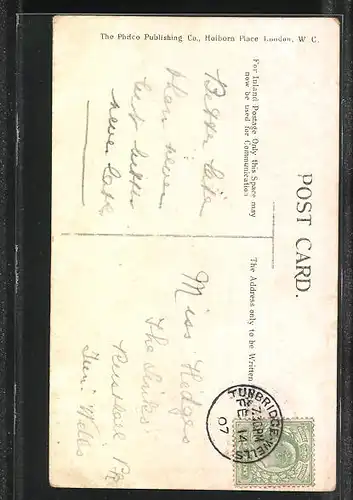 The Philco Publishing Co., Holborn Place London, W. C.
POST CARD.
For Inland Postage Only this Space may
now be used for Communication
The Address only to be Written
Better late
than never
but better
never late
Miss Hedges
The Links
Rusthall
Tun: Wells
TUNBRIDGE WELLS
7.30PM
FE 14
07